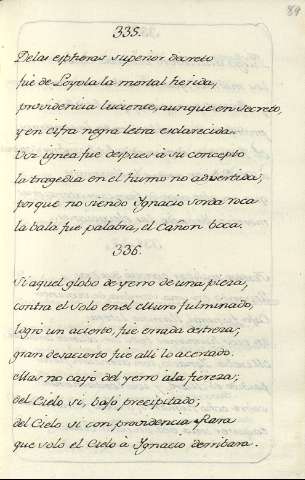 89
335.
De las espheras superior decreto
fue de Loyola la mortal herida,
providencia luciente, aunque en secreto,
y en cifra negra letra esclarecida.
Voz ignea fue despues à su concepto
la tragedia en el humo no advertida,
porque no siendo Ignacio sorda roca
la bala fue palabra, el Cañon boca.
336.
Si aquel globo de yerro de una pieza,
contra el solo en el Muro fulminado,
logrò un acierto, fue errada destreza;
gran desacierto fue alli lo acertado.
Mas no cayò del yerro à la fiereza;
del Cielo si, bajó precipitado;
del Cielo si con providencia Rara
que solo el Cielo à Ignacio derribara.